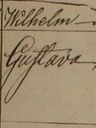 Wilhelm
Gustava